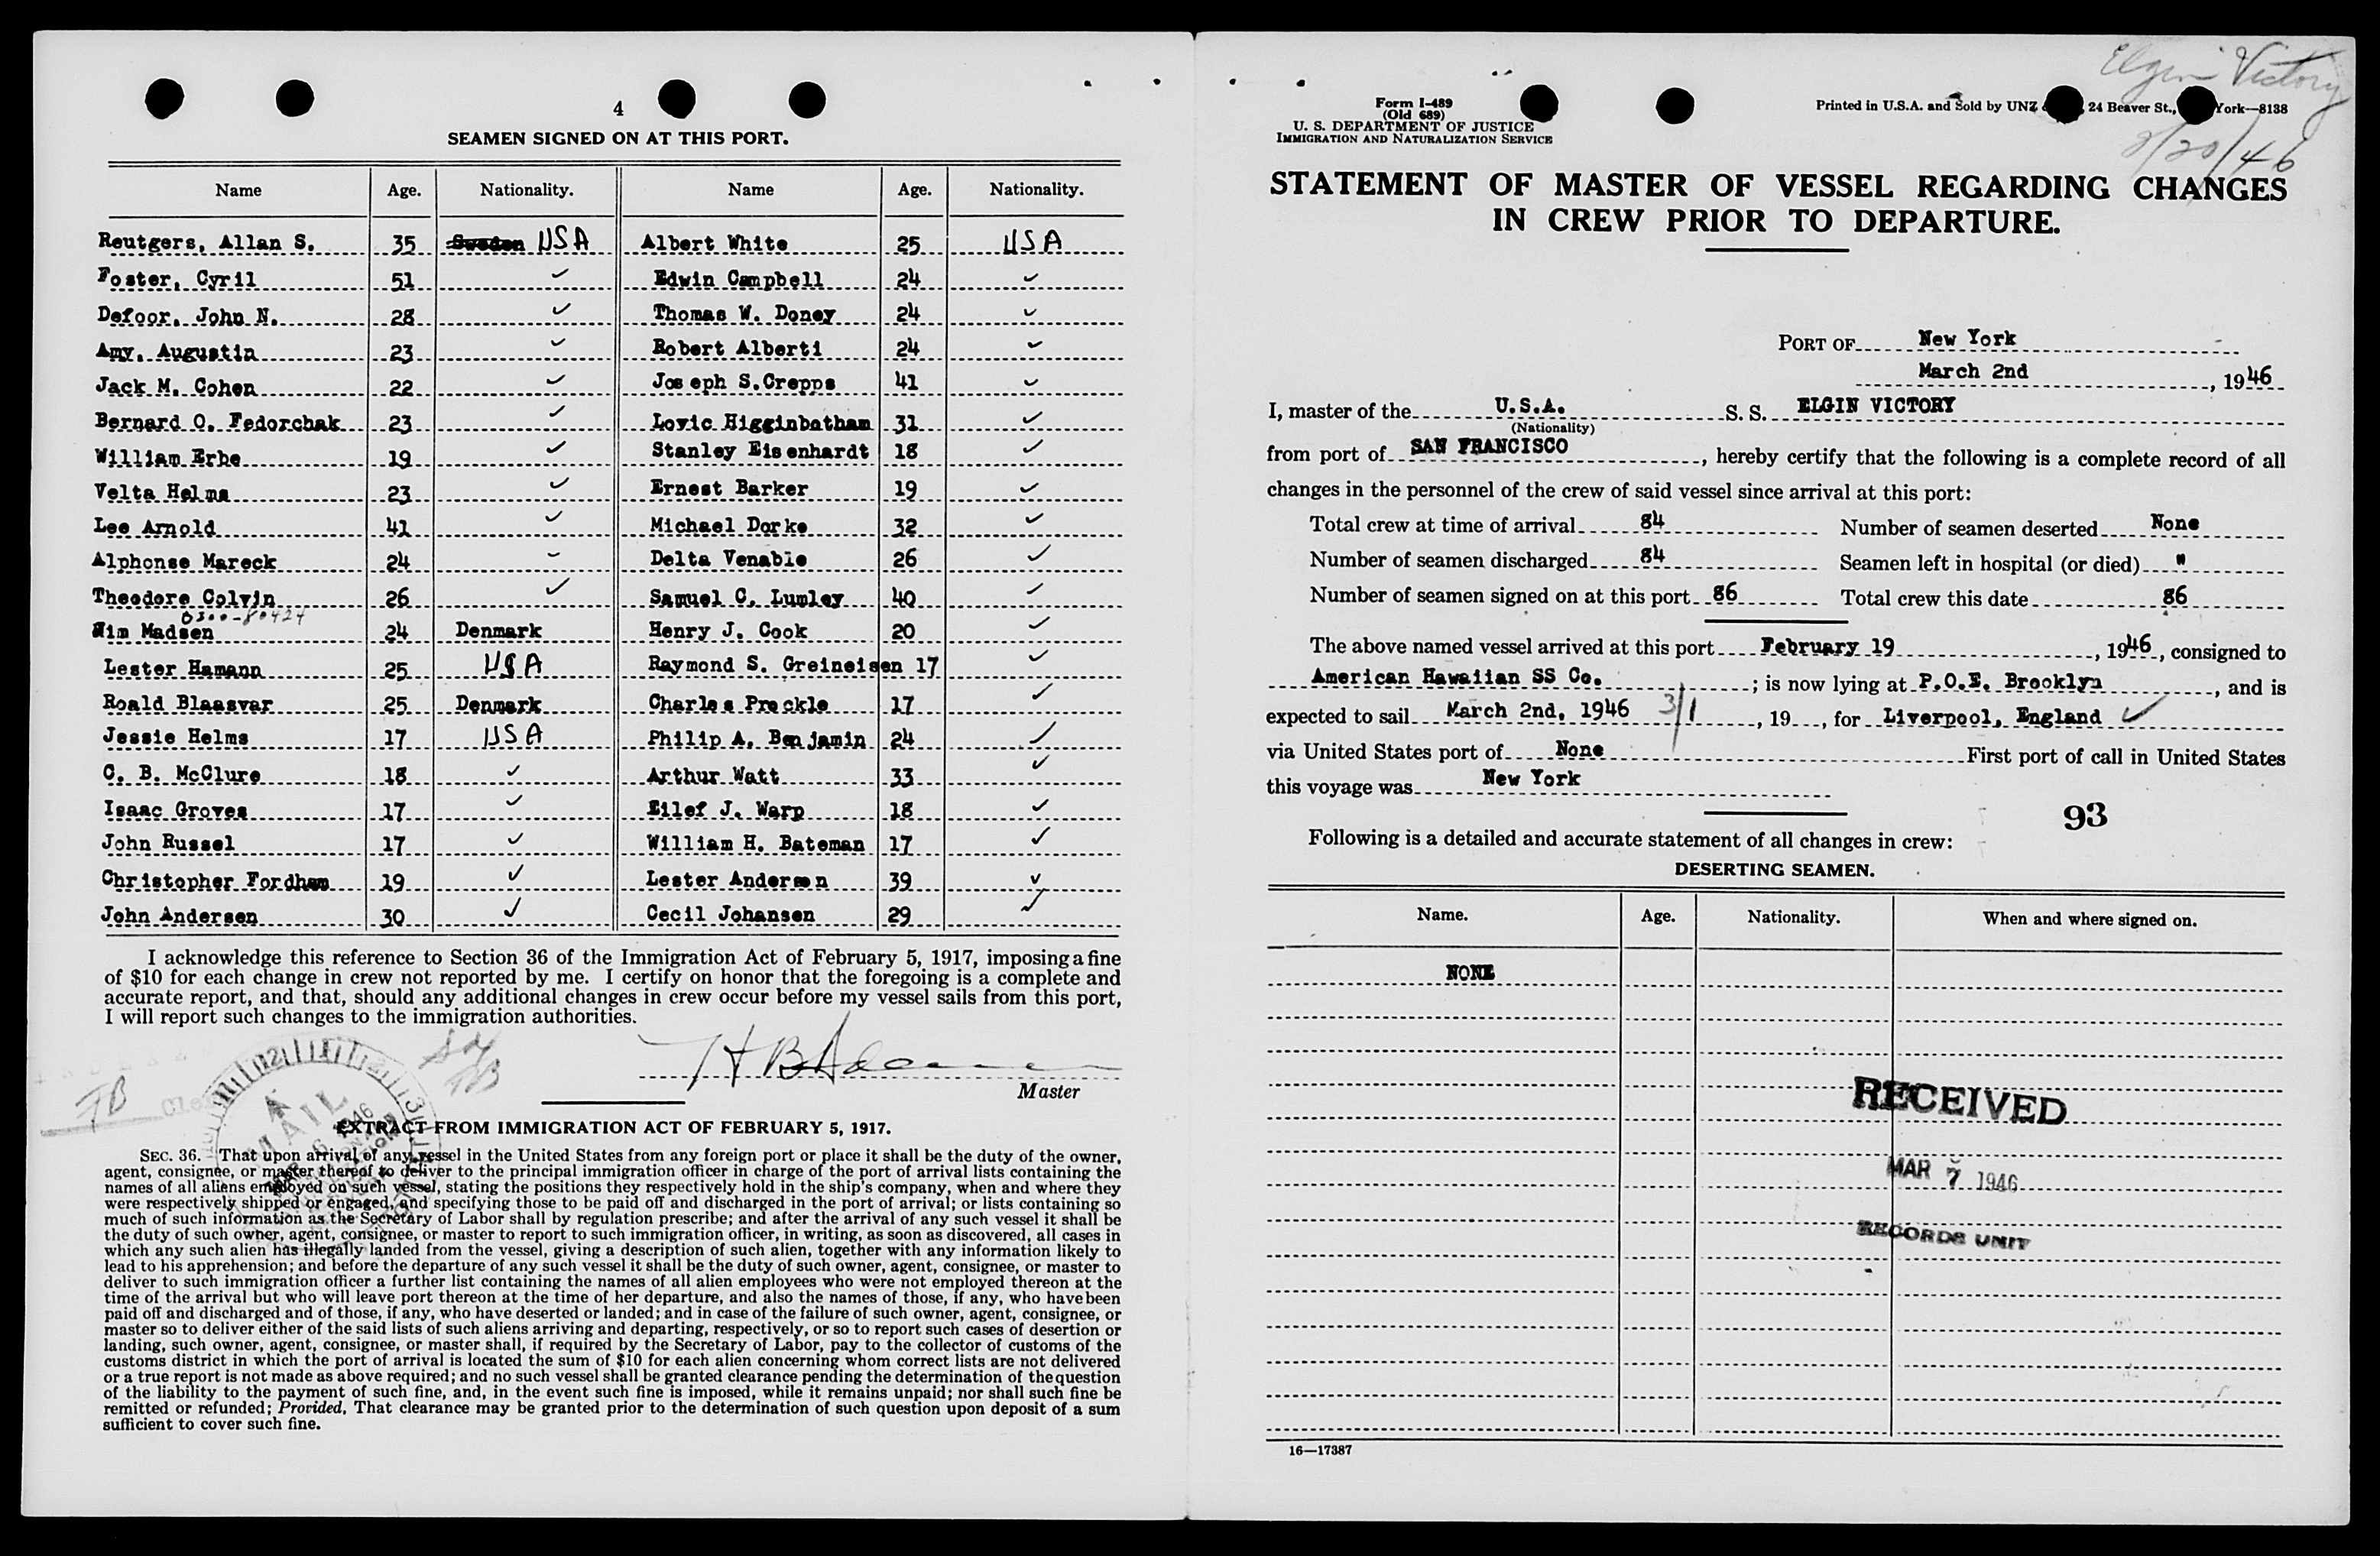 4
SEAMEN SIGNED ON AT THIS PORT.
Name Age. Nationality. Name Age. Nationality.
Reutgers, Allan S. 35 Sweden USA Albert White 25 USA
Foster, Cyril 51 ✓ Edwin Campbell 24 ✓
Defoor, John N. 28 ✓ Thomas W. Doney 24 ✓
Amy, Augustin 23 ✓ Robert Alberti 24 ✓
Jack M. Cohen 22 ✓ Jos eph S.Crepps 41 ✓
Bernard O. Fedorchak 23 ✓ Lovic Higginbotham 31 ✓
William Erbe 19 ✓ Stanley Eis enhardt 18 ✓
Velta Helms 23 ✓ Ernest Barker 19 ✓
Lee Arnold 41 ✓ Michael Dorke 32 ✓
Alphonse Mareck 24 ✓ Delta Venable 26 ✓
Theodore Colvin 26 ✓ Samuel C. Lumley 40 ✓
0300-80424
Nim Madsen 24 Denmark Henry J. Cook 20 ✓
Lester Hamann 25 USA Raymond S. Greineisen 17 ✓
Roald Blaasvar 25 Denmark Charles Preckle 17 ✓
Jessie Helms 17 USA Philip A. Benjamin 24 ✓
C. B. McClure 18 ✓ Arthur Watt 33 ✓
Isaac Groves 17 ✓ Eilef J. Warp 18 ✓
John Russel 17 ✓ William H. Bateman 17 ✓
Christopher Fordham 19 ✓ Lester Anderson 39 ✓
John Andersen 30 ✓ Cecil Johansen 29 ✓
I acknowledge this reference to Section 36 of the Immigration Act of February 5, 1917, imposing a fine
of $10 for each change in crew not reported by me. I certify on honor that the foregoing is a complete and
accurate report, and that, should any additional changes in crew occur before my vessel sails from this port,
I will report such changes to the immigration authorities.
Master
EXTRACT FROM IMMIGRATION ACT OF FEBRUARY 5, 1917.
SEC. 36. That upon arrival of any vessel in the United States from any foreign port or place it shall be the duty of the owner,
agent, consignee, or master thereof to deliver to the principal immigration officer in charge of the port of arrival lists containing the
names of all aliens employed on such vessel, stating the positions they respectively hold in the ship's company, when and where they
were respectively shipped or engaged, and specifying those to be paid off and discharged in the port of arrival; or lists containing so
much of such information as the Secretary of Labor shall by regulation prescribe; and after the arrival of any such vessel it shall be
the duty of such owner, agent, consignee, or master to report to such immigration officer, in writing, as soon as discovered, all cases in
which any such alien has illegally landed from the vessel, giving a description of such alien, together with any information likely to
lead to his apprehension; and before the departure of any such vessel it shall be the duty of such owner, agent, consignee, or master to
deliver to such immigration officer a further list containing the names of all alien employees who were not employed thereon at the
time of the arrival but who will leave port thereon at the time of her departure, and also the names of those, if any, who have been
paid off and discharged and of those, if any, who have deserted or landed; and in case of the failure of such owner, agent, consignee, or
master so to deliver either of the said lists of such aliens arriving and departing, respectively, or so to report such cases of desertion or
landing, such owner, agent, consignee, or master shall, if required by the Secretary of Labor, pay to the collector of customs of the
customs district in which the port of arrival is located the sum of $10 for each alien concerning whom correct lists are not delivered
or a true report is not made as above required; and no such vessel shall be granted clearance pending the determination of the question
of the liability to the payment of such fine, and, in the event such fine is imposed, while it remains unpaid; nor shall such fine be
remitted or refunded; Provided, That clearance may be granted prior to the determination of such question upon deposit of a sum
sufficient to cover such fine.
Elgin Victory
2/20/46
Form I-489
(Old 689)
U. S. DEPARTMENT OF JUSTICE
IMMIGRATION AND NATURALIZATION SERVICE
Printed in U.S.A. and Sold by UNZ 24 Beaver St., York—8138
STATEMENT OF MASTER OF VESSEL REGARDING CHANGES
IN CREW PRIOR TO DEPARTURE.
PORT OF New York
March 2nd, 1946
I, master of the U.S.A. S. S. ELGIN VICTORY
(Nationality)
from port of SAN FRANCISCO, hereby certify that the following is a complete record of all
changes in the personnel of the crew of said vessel since arrival at this port:
Total crew at time of arrival 84 Number of seamen deserted None
Number of seamen discharged 84 Seamen left in hospital (or died) "
Number of seamen signed on at this port 86 Total crew this date 86
The above named vessel arrived at this port February 19, 1946, consigned to
American Hawaiian SS Co.; is now lying at P.O.E. Brooklyn, and is
expected to sail March 2nd, 1946 3/1, 19, for Liverpool, England ✓
via United States port of None First port of call in United States
this voyage was New York
93
Following is a detailed and accurate statement of all changes in crew:
DESERTING SEAMEN.
Name. Age. Nationality. When and where signed on.
NONE
RECEIVED
MAR 7 1946
RECORDS UNIT
16—17387